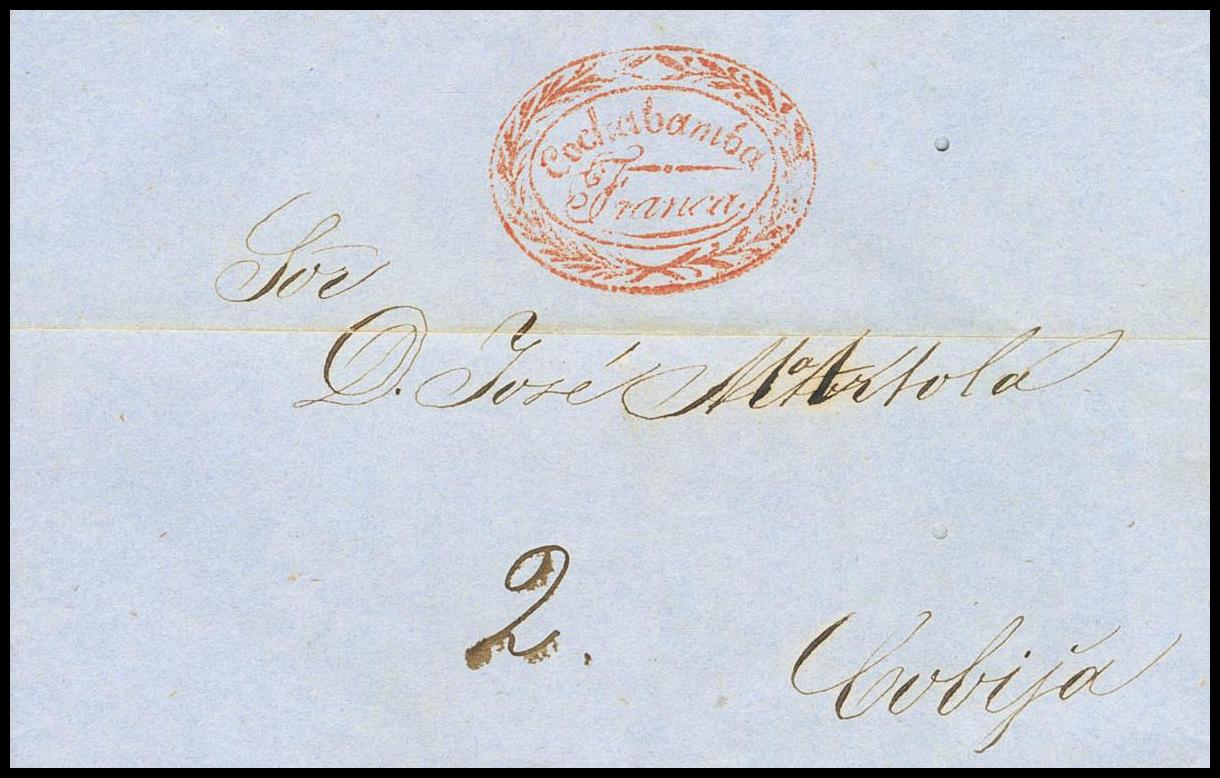 Cochabamba
Franca.
Sor
D. José Ma Artola
2.
Cobija